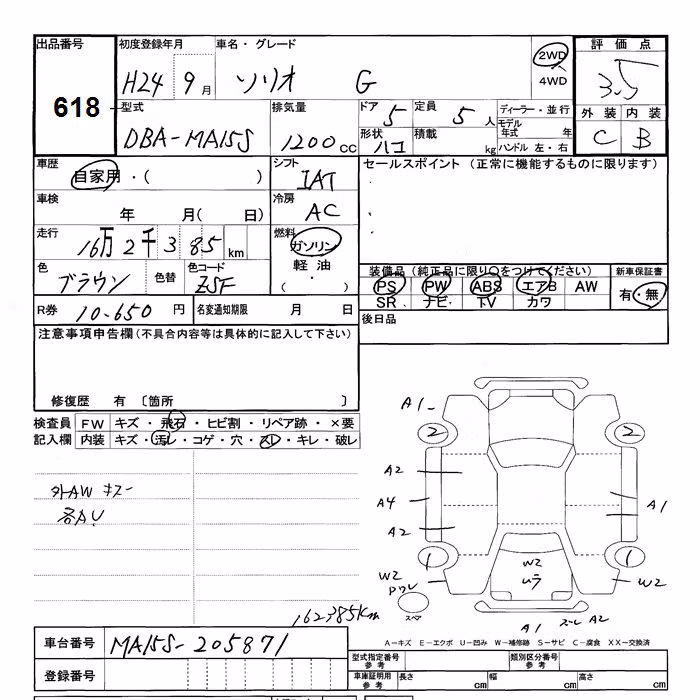 出品番号 初度登録年月 車名・グレード 評価点
618
H24 9月 ソリオ G 2WD 4WD 3.5
型式 排気量 ドア 定員 ディーラー・並行 外装 内装
DBA-MA15S 1200cc 5 5人 モデル年式 年 C B
形状 ハコ 積載 kg ハンドル 左・右
車歴 自家用・( ) シフト IAT セールスポイント(正常に機能するものに限ります)
車検 年 月( 日) 冷房 AC
走行 16万2千385km 燃料 ガソリン 軽油 ( ・ )
色 ブラウン 色替 色コード ZSF 装備品(純正品に限り○をつけてください) 新車保証書
PS PW ABS エアB AW 有・無
SR ナビ TV カワ
R券 10,650円 名変通知期限 月 日 後日品
注意事項申告欄(不具合内容等は具体的に記入して下さい)
修復歴 有〔箇所 〕
検査員 FW キズ・飛石・ヒビ割・リペア跡・×要
記入欄 内装 キズ・汚レ・コゲ・穴・スレ・キレ・破レ
外AW キズ
各AU
A1
2 2
A2
A4 A1
A2
1 1
W2 W2 W2
ムラ
スペア
A1 スレ A2
162385km
A-キズ E-エクボ U-凹み W-補修跡 S-サビ C-腐食 XX-交換済
車台番号 MA15S-205871
型式指定番号 参考 類別区分番号 参考
登録番号 車庫証明用 参考 長さ cm 幅 cm 高さ cm